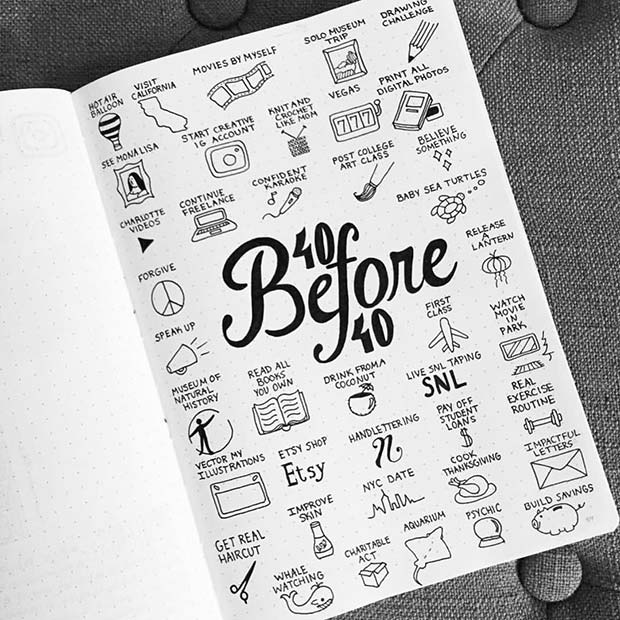 DRAWING
CHALLENGE
SOLO MUSEUM
TRIP
MOVIES BY MYSELF
VISIT
CALIFORNIA
HOT AIR
BALLOON
PRINT ALL
DIGITAL PHOTOS
VEGAS
KNIT AND
CROCHET
LIKE MOM
START CREATIVE
IG ACCOUNT
SEE MONA LISA
BELIEVE
SOMETHING
POST COLLEGE
ART CLASS
777
CONFIDENT
KARAOKE
CONTINUE
FREELANCE
CHARLOTTE
VIDEOS
BABY SEA TURTLES
RELEASE
A
LANTERN
FORGIVE
40
Before
40
SPEAK UP
FIRST
CLASS
WATCH
MOVIE
IN
PARK
MUSEUM OF
NATURAL
HISTORY
READ ALL
BOOKS
YOU OWN
DRINK FROM A
COCONUT
LIVE SNL TAPING
SNL
REAL
EXERCISE
ROUTINE
VECTOR MY
ILLUSTRATIONS
ETSY SHOP
Etsy
HANDLETTERING
n
PAY OFF
STUDENT
LOANS
$
IMPACTFUL
LETTERS
NYC DATE
COOK
THANKSGIVING
GET REAL
HAIRCUT
IMPROVE
SKIN
CHARITABLE
ACT
AQUARIUM
PSYCHIC
BUILD SAVINGS
WHALE
WATCHING